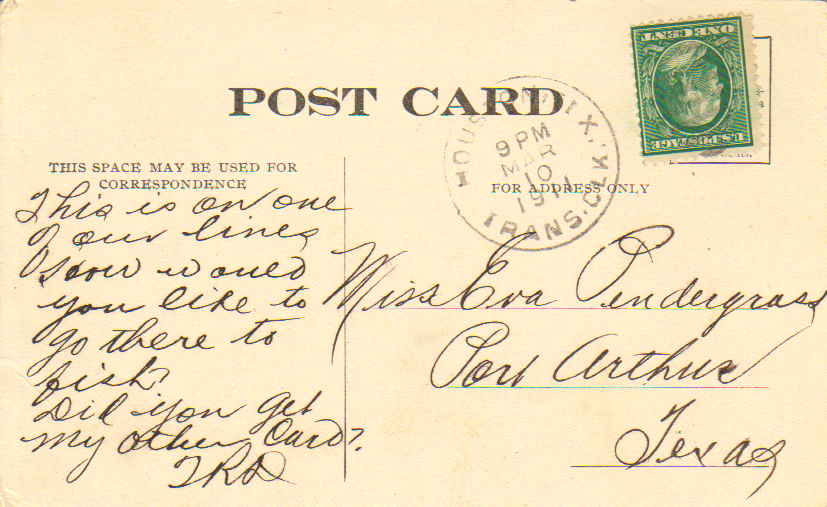 POST CARD
THIS SPACE MAY BE USED FOR
CORRESPONDENCE
FOR ADDRESS ONLY
ONE CENT
U.S. POSTAGE
HOUSTON, TEX.
9 PM
MAR
10
1911
TRANS. CLK.
This is on one
of our lines
How would
you like to
go there to
fish?
Did you get
my other Card?
TRD
Miss Eva Pendergrass
Port Arthur
Texas